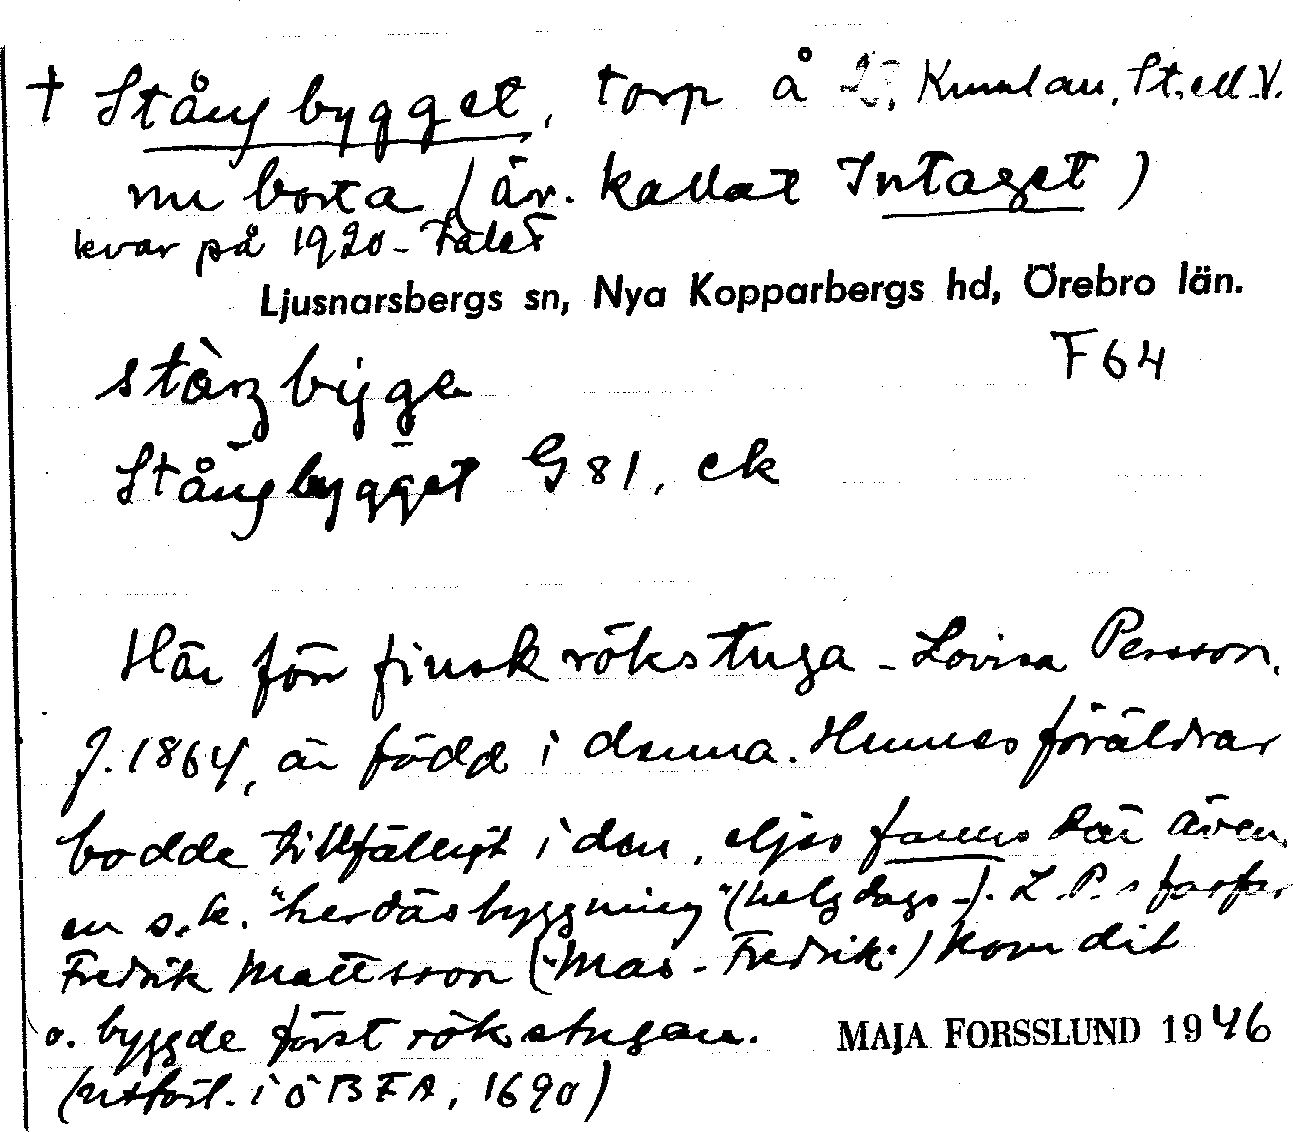 † Stångbygget, torp å Kumlan, St. ell. V.
nu borta (äv. kallat Intaget)
kvar på 1920-talet
Ljusnarsbergs sn, Nya Kopparbergs hd, Örebro län.
F64
Stångbygget G 81, ek
Här förr finsk rökstuga - Lovisa Persson,
f. 1864, är född i denna. Hennes föräldrar
bodde tillfälligt i den, eljes fanns där även
en s.k. "herdäsbyggning" (helgdags-). L.P.s farfar
Fredrik Mattsson ("Mas-Fredrik") kom dit
o. byggde först rökstugan.
MAJA FORSSLUND 1946
(utförl. i ÖBFA, 1690)